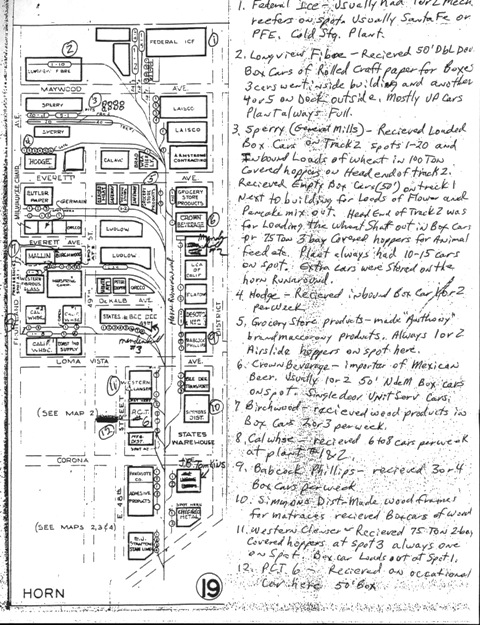 1. Federal Ice - Usually had 1 or 2 Mech.
reefers on spots Usually Santa Fe or
PFE. Cold Stg. Plant.
2. Longview Fibre - Recieved 50' Dbl Dor
Box Cars of Rolled Craft paper for Boxes
3 cars went inside building and another
4 or 5 on Deck outside. Mostly UP Cars
Plant always Full.
3. Sperry (General Mills) - Recieved Loaded
Box Cars on Track 2 spots 1-20 and
Inbound Loads of Wheat in 100 Ton
Covered hoppers on Head end of track 2.
Recieved Empty Box Cars (50') on track 1
Next to building for Loads of Flower and
Pancake mix out. Head End of Track 2 was
for Loading the Wheat Shut out in Box Cars
or 75 Ton 3 bay Covered hoppers for Animal
feed etc. Plant always had 10-15 cars
on spot. Extra Cars were Stored on the
horn Runaround.
4 Hodge - Recieved inbound Box Car, 1 or 2
per week.
5. Grocery Store products - made "Anthony"
brand maccorony products. Always 1 or 2
Airslide hoppers on spot here.
6. Crown Beverage - importer of Mexican
Beer. Usually 1 or 2 50' NdeM Box cars
on spot. Single door Unit Serv Cars.
7 Birchwood - recieved wood products in
Box Cars 2 or 3 per week.
8. Cal whse - recieved 6 to 8 cars per week
at plant #1 & 2.
9. Babcock Phillips - recieved 3 or 4
Box Cars per week
10. Simmons Dist - Made wood frames
for matrices recieved Boxcars of wood
11. Western Clewer - Recieved 75 Ton 2 bay
Covered hoppers at spot 3 always one
on Spot. Box car Loads out at Spot 1.
12. PCT 6 - Recieved an occational
Car here 50' Box
1
FEDERAL ICE
2
LONGVIEW FIBRE
MAYWOOD
AVE.
SPERRY
3
LAISCO
SPERRY
LAISCO
4
HODGE
CALAVO
ARMSTRONG
CONTRACTING
EVERETT
AVE.
5
BUTLER
PAPER
GERMAIN
GROCERY
STORE
PRODUCTS
CROWN
BEVERAGE
6
LUDLOW
EVERETT AVE.
MALLIN
BIRCHWOOD
LUDLOW
FLATOW
DE KALB AVE.
STATES & BEE DEE
CAL.
WHSE.
DESOTO
CALIF.
WHSC.
BABCOCK
PHILLIPS
9
LOMA VISTA
AVE.
11
WESTERN
BEE DEE
TRANSPORT
(SEE MAP 2)
STREET
P.C.T.
#6
12
SIMMONS
DIST.
10
STATES
WAREHOUSE
CORONA
ADHESIVE
PRODUCTS
E. 48th
CHICAGO
METAL
(SEE MAPS 2,3&4)
HORN
19